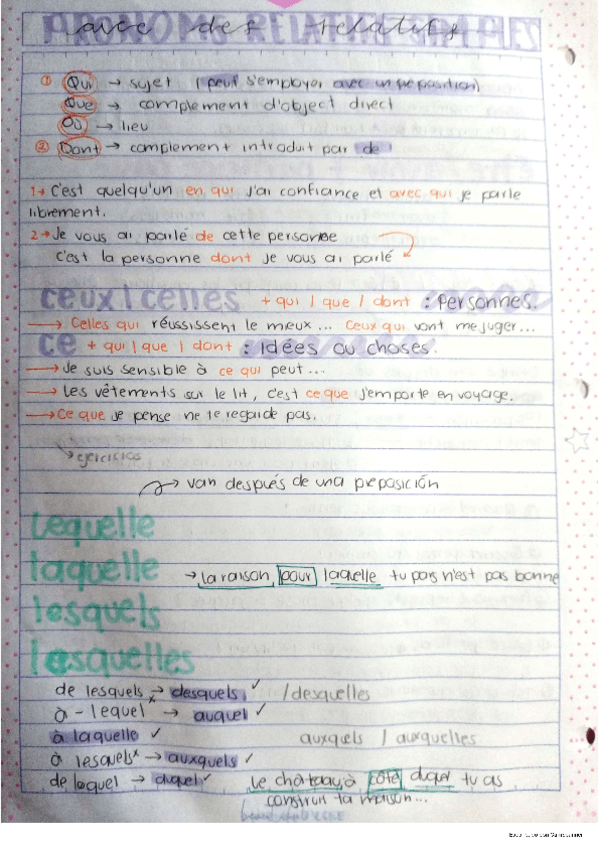 PRONOMS RELATIFS SIMPLES
avec des relatifs
① Qui → sujet (peut s'employer avec un préposition)
Que → complement d'object direct
Où → lieu
② Dont → complement introduit par de
1→ C'est quelqu'un en qui j'ai confiance et avec qui je parle
librement.
2→ Je vous ai parlé de cette personne
c'est la personne dont je vous ai parlé
ceux / celles + qui / que / dont : Personnes.
→ Celles qui réussissent le mieux... Ceux qui vont me juger...
ce + qui / que / dont : Idées ou choses.
→ Je suis sensible à ce qui peut...
→ Les vêtements sur le lit, c'est ce que j'emporte en voyage.
→ Ce que je pense ne te regarde pas.
→ ejercicios
→ van después de una preposición
Lequelle
laquelle → la raison pour laquelle tu pars n'est pas bonne
lesquels
lesquelles
de lesquels x→ desquels ✓ / desquelles
à - lequel → auquel ✓
à laquelle ✓ auxquels / auxquelles
à lesquels x → auxquels ✓
de lequel → duquel ✓ Le château, à côté duquel tu as
construit ta maison...